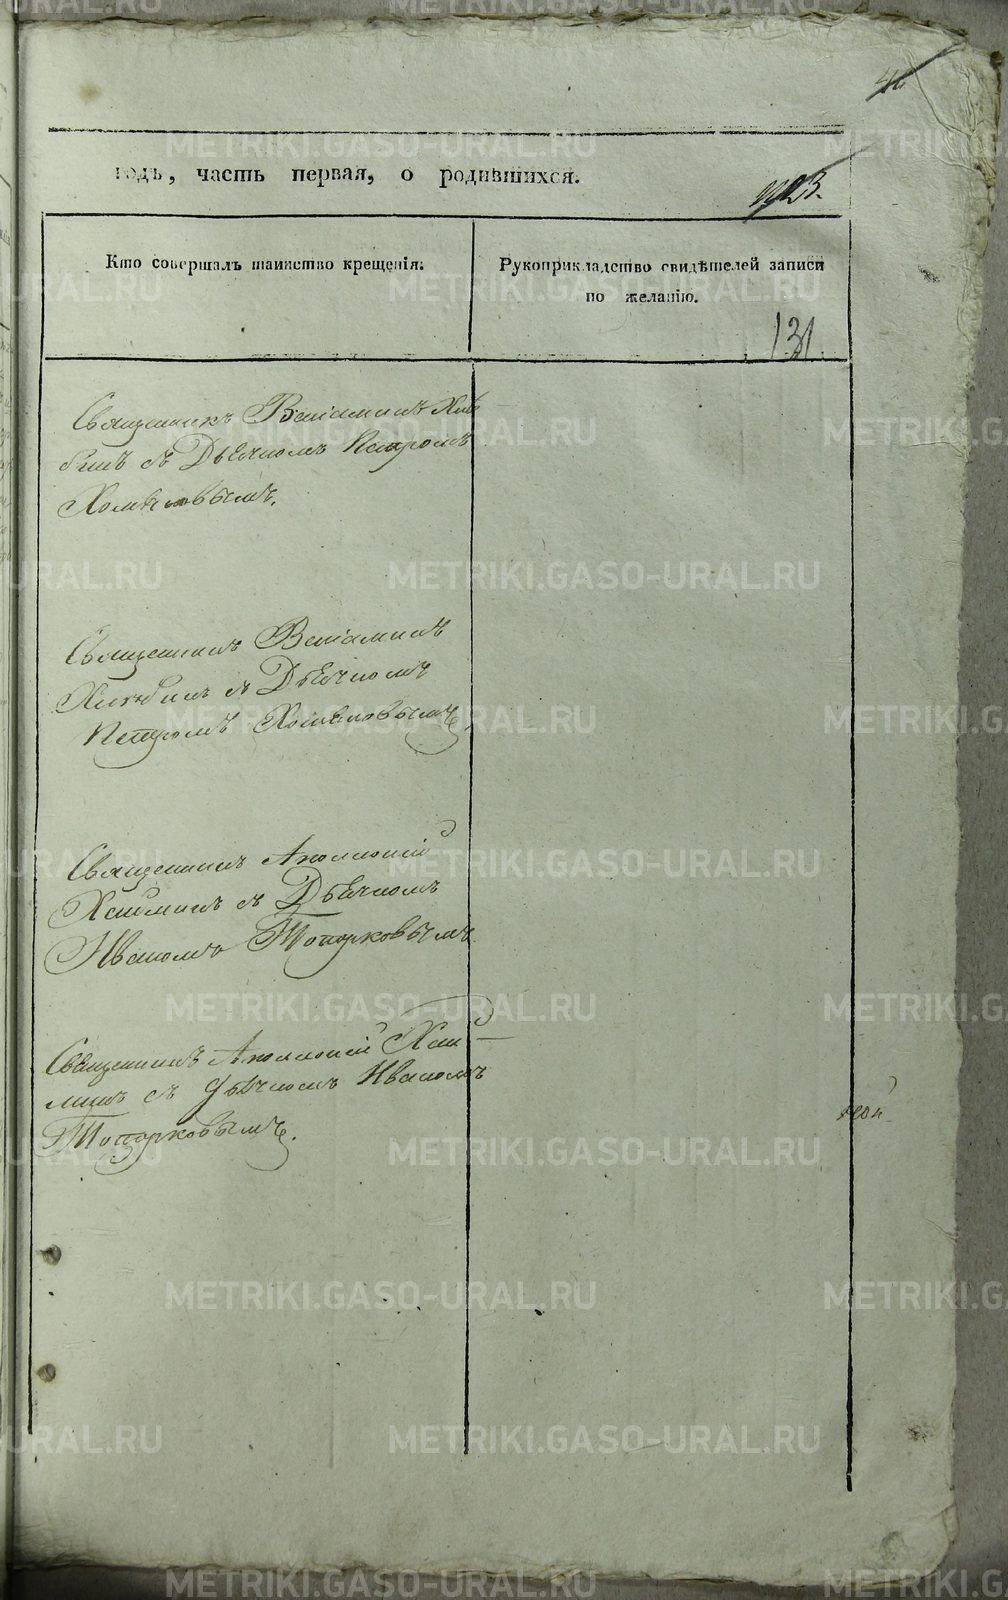 46
годъ, часть первая, о родившихся.
Кто совершалъ таинство крещенія.
Рукоприкладство свидѣтелей записи
по желанію.
131.
Священникъ Веніаминъ Хлѣ
бинъ съ Дьячкомъ Петромъ
Хомяковымъ.
Священникъ Веніаминъ
Хлѣбинъ съ Дьячкомъ
Петромъ Хомяковымъ
Священникъ Аполлоній
съ Дьячкомъ
Иваномъ Топорковымъ
Священникъ Аполлоній
съ Дьячкомъ Иваномъ
Топорковымъ.
METRIKI.GASO-URAL.RU